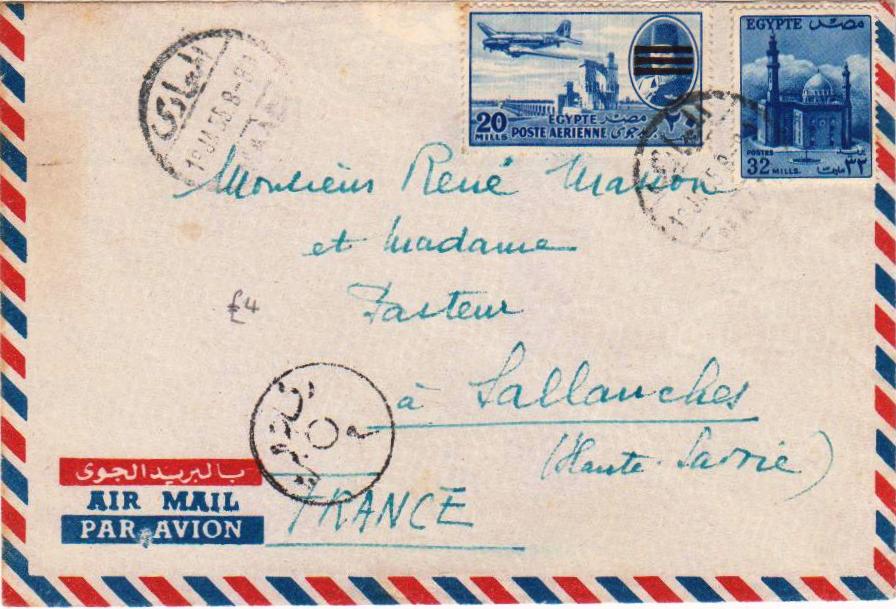 المعادى
19 JA. 55. 8-
EGYPTE مصر
20
MILLS
POSTE AERIENNE بريد جوى
EGYPTE مصر
POSTES
32 MILLS. ٣٢ مليمات
Monsieur René Masson
et Madame
Pasteur
£4
à Sallanches
(Haute-Savoie)
بالبريد الجوى
AIR MAIL
PAR AVION
FRANCE